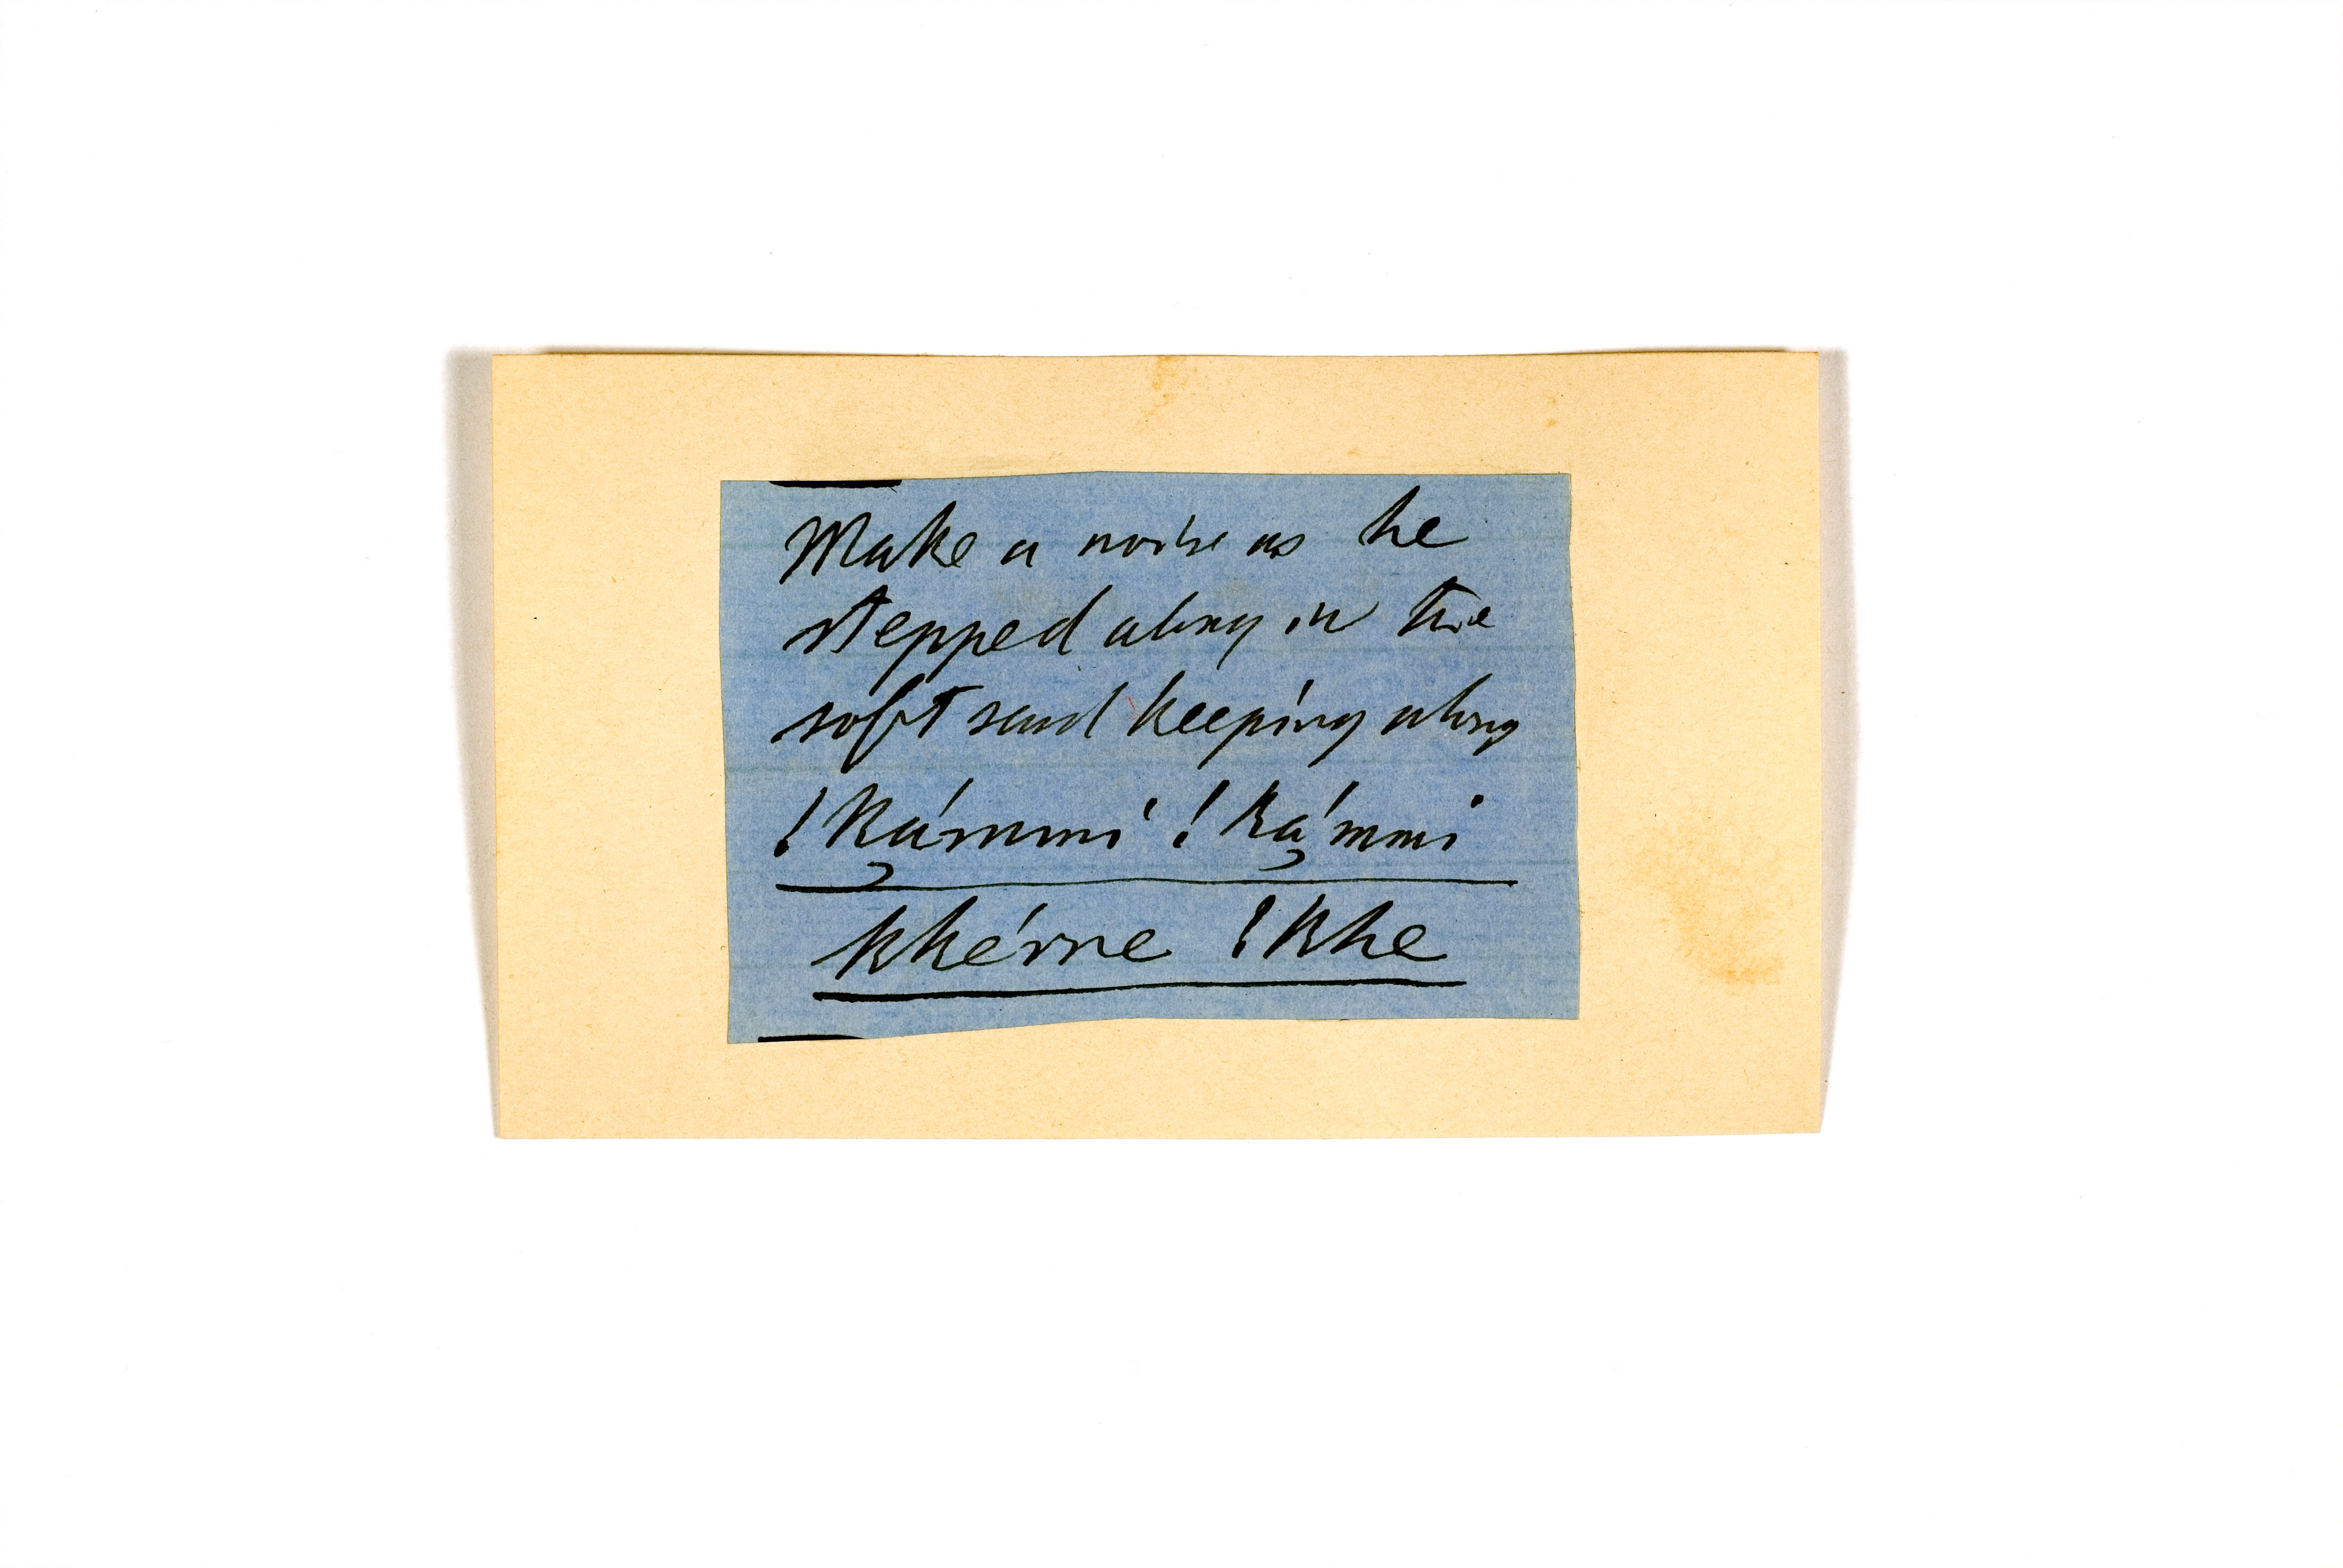 Make a noise as he
stepped along in the
soft sand keeping along
!ká̦mmi !ká̦mmi
khérre !khe